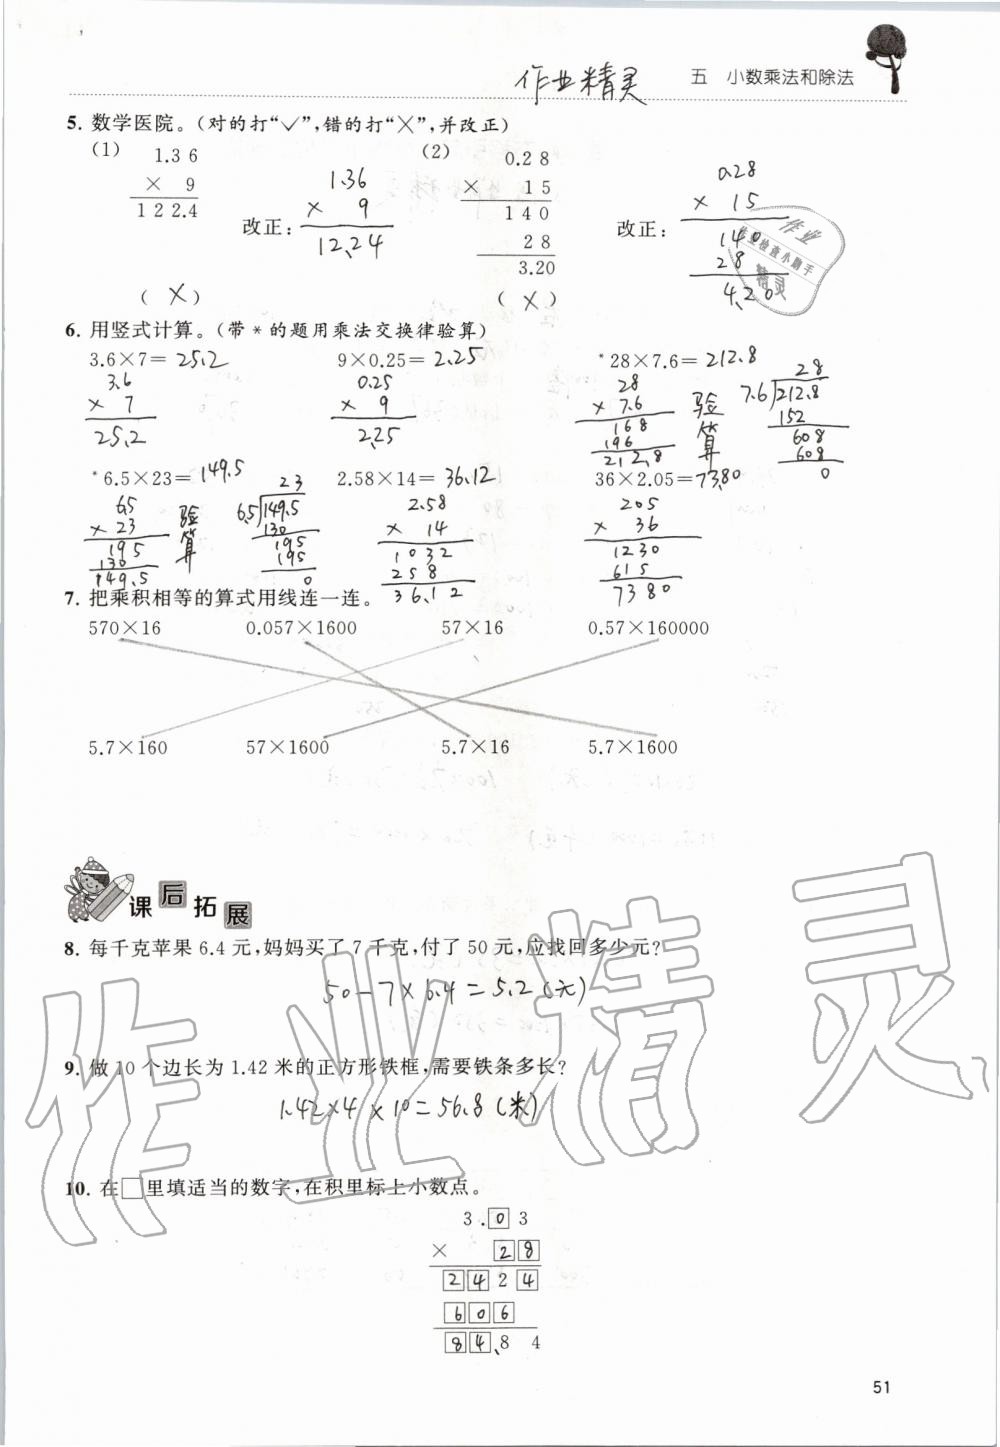 作业精灵 五 小数乘法和除法
5. 数学医院。(对的打“✓”,错的打“×”,并改正)
(1) (2)
1.36
× 9
122.4
改正:
1.36
× 9
12.24
( × )
0.28
× 15
140
28
3.20
改正:
0.28
× 15
140
28
4.20
( × )
作业
作业检查小助手
精灵
6. 用竖式计算。(带 * 的题用乘法交换律验算)
3.6×7= 25.2 9×0.25= 2.25 *28×7.6= 212.8
3.6
× 7
25.2
0.25
× 9
2.25
28
× 7.6
168
196
212.8
验算
28
7.6 212.8
152
608
608
0
*6.5×23= 149.5 2.58×14= 36.12 36×2.05= 73.80
6.5
× 23
195
130
149.5
验算
23
6.5 149.5
130
195
195
0
2.58
× 14
1032
258
36.12
205
× 36
1230
615
7380
7. 把乘积相等的算式用线连一连。
570×16 0.057×1600 57×16 0.57×160000
5.7×160 57×1600 5.7×16 5.7×1600
课后拓展
8. 每千克苹果 6.4 元,妈妈买了 7 千克,付了 50 元,应找回多少元?
50-7×6.4=5.2(元)
9. 做 10 个边长为 1.42 米的正方形铁框,需要铁条多长?
1.42×4×10=56.8(米)
10. 在□里填适当的数字,在积里标上小数点。
3.03
× 28
2424
606
84.84
作业精灵
51